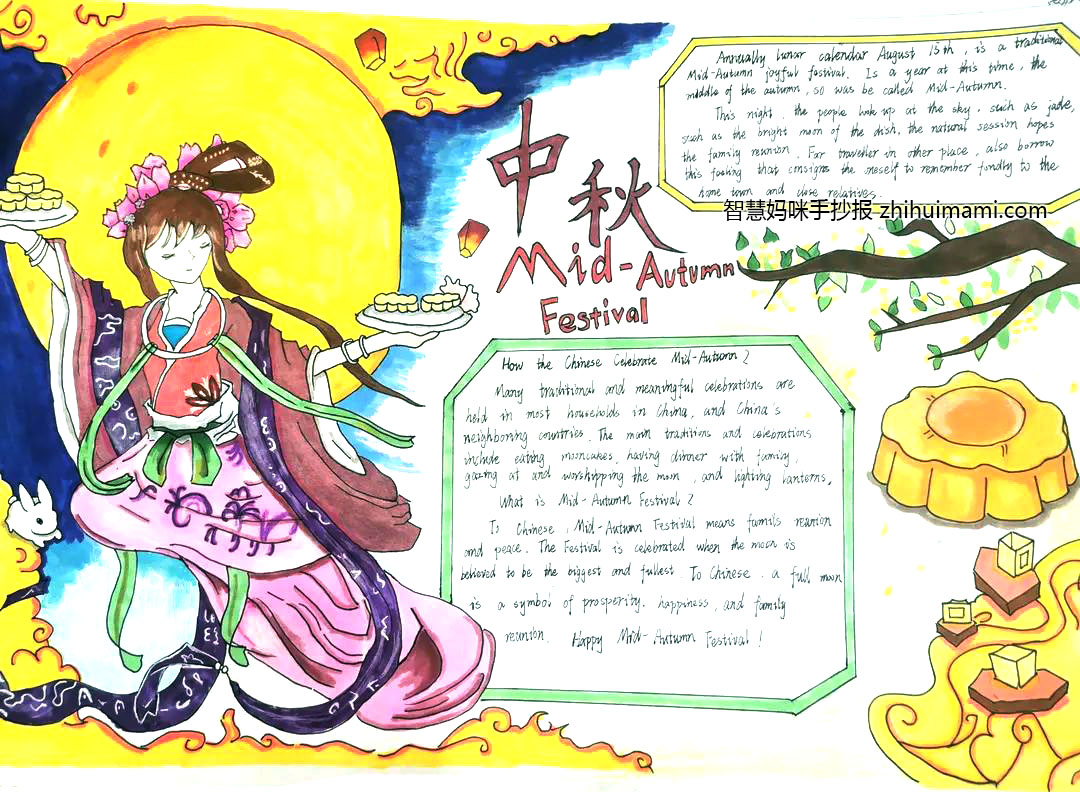 Annually lunar calendar August 15th, is a traditional
Mid-Autumn joyful festival. Is a year at this time, the
middle of the autumn, so was be called Mid-Autumn.
This night, the people look up at the sky, such as jade,
such as the bright moon of the dish, the natural session hopes
the family reunion. Far traveller in other place, also borrow
this feeling that consigns the oneself to remember fondly to the
home town and close relatives.
智慧妈咪手抄报 zhihuimami.com
中秋
Mid-Autumn
Festival
How the Chinese Celebrate Mid-Autumn?
Many traditional and meaningful celebrations are
held in most households in China, and China's
neighboring countries. The main traditions and celebrations
include eating mooncakes, having dinner with family,
gazing at and worshipping the moon, and lighting lanterns.
What is Mid-Autumn Festival?
To Chinese, Mid-Autumn Festival means family reunion
and peace. The Festival is celebrated when the moon is
believed to be the biggest and fullest. To Chinese, a full moon
is a symbol of prosperity, happiness, and family
reunion. Happy Mid-Autumn Festival!